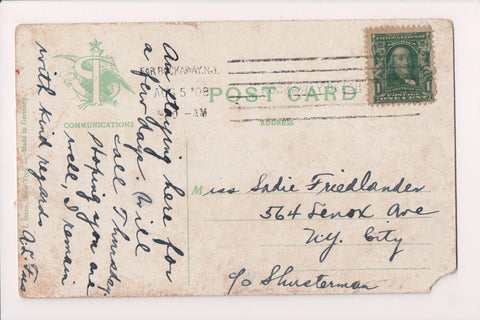 FAR ROCKAWAY, N.Y.
POST CARD
COMMUNICATIONS
ADDRESS
Made in Germany
Am staying here for
a few days. Will
call Thursday.
Hoping you are
well, I remain
with kind regard
Miss Sadie Friedlander
564 Lenox Ave
N.Y. City
c/o Shusterman